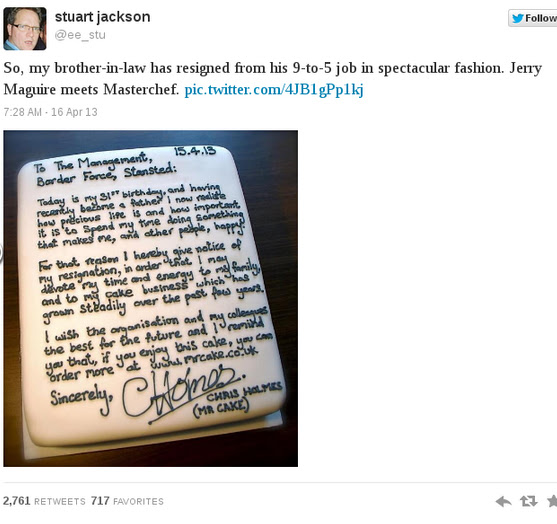 stuart jackson
@ee_stu
Follow
So, my brother-in-law has resigned from his 9-to-5 job in spectacular fashion. Jerry
Maguire meets Masterchef. pic.twitter.com/4JB1gPp1kj
7:28 AM - 16 Apr 13
To The Management, 15.4.13
Border Force, Stansted:
Today is my 31st birthday, and having
recently become a father I now realise
how precious life is and how important
it is to spend my time doing something
that makes me, and other people, happy.
For that reason I hereby give notice of
my resignation, in order that I may
devote my time and energy to my family,
and to my cake business which has
grown steadily over the past few years.
I wish the organisation and my colleagues
the best for the future and I remind
you that, if you enjoy this cake, you can
order more at www.mrcake.co.uk
Sincerely, CHolmes.
CHRIS HOLMES
(MR CAKE)
2,761 RETWEETS 717 FAVORITES